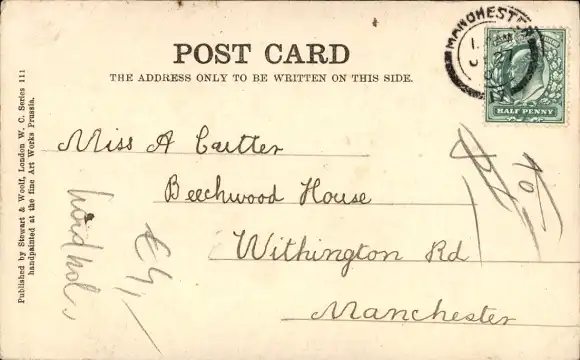 POST CARD
THE ADDRESS ONLY TO BE WRITTEN ON THIS SIDE.
MANCHESTER
HALF PENNY
Miss A Cartter
Beechwood House
Withington Rd
Manchester
Published by Stewart & Woolf, London W. C. Series 111
handpainted at the fine Art Works Prussia.